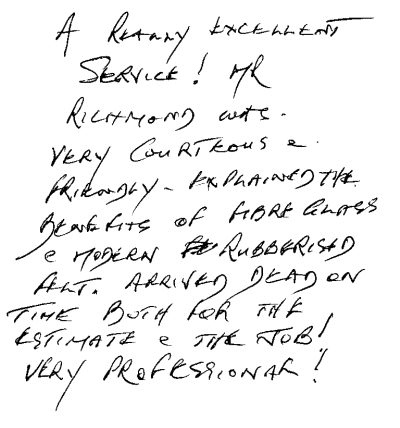 A REALLY EXCELLENT
SERVICE! MR
RICHMOND WAS.
VERY COURTEOUS &
FRIENDLY - EXPLAINED THE
BENEFITS OF FIBRE GLASS
& MODERN RUBBERISED
FELT. ARRIVED DEAD ON
TIME BOTH FOR THE
ESTIMATE & THE JOB!
VERY PROFESSIONAL!